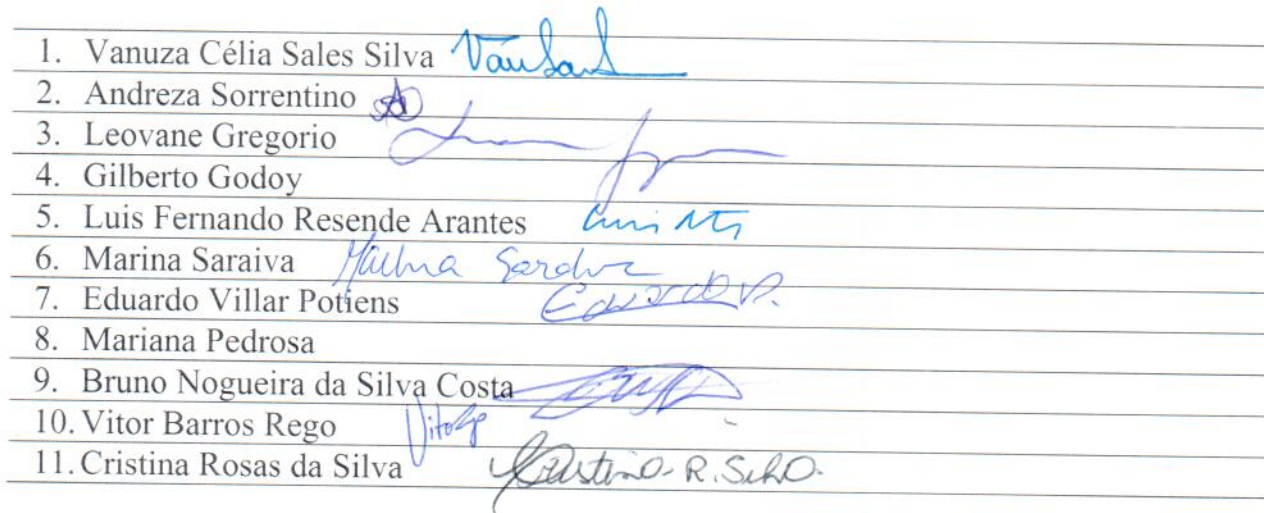 1. Vanuza Célia Sales Silva
2. Andreza Sorrentino
3. Leovane Gregorio
4. Gilberto Godoy
5. Luis Fernando Resende Arantes
6. Marina Saraiva Marina Saraiva
7. Eduardo Villar Potiens Eduardo V.
8. Mariana Pedrosa
9. Bruno Nogueira da Silva Costa
10. Vitor Barros Rego
11. Cristina Rosas da Silva Cristina R. Silva